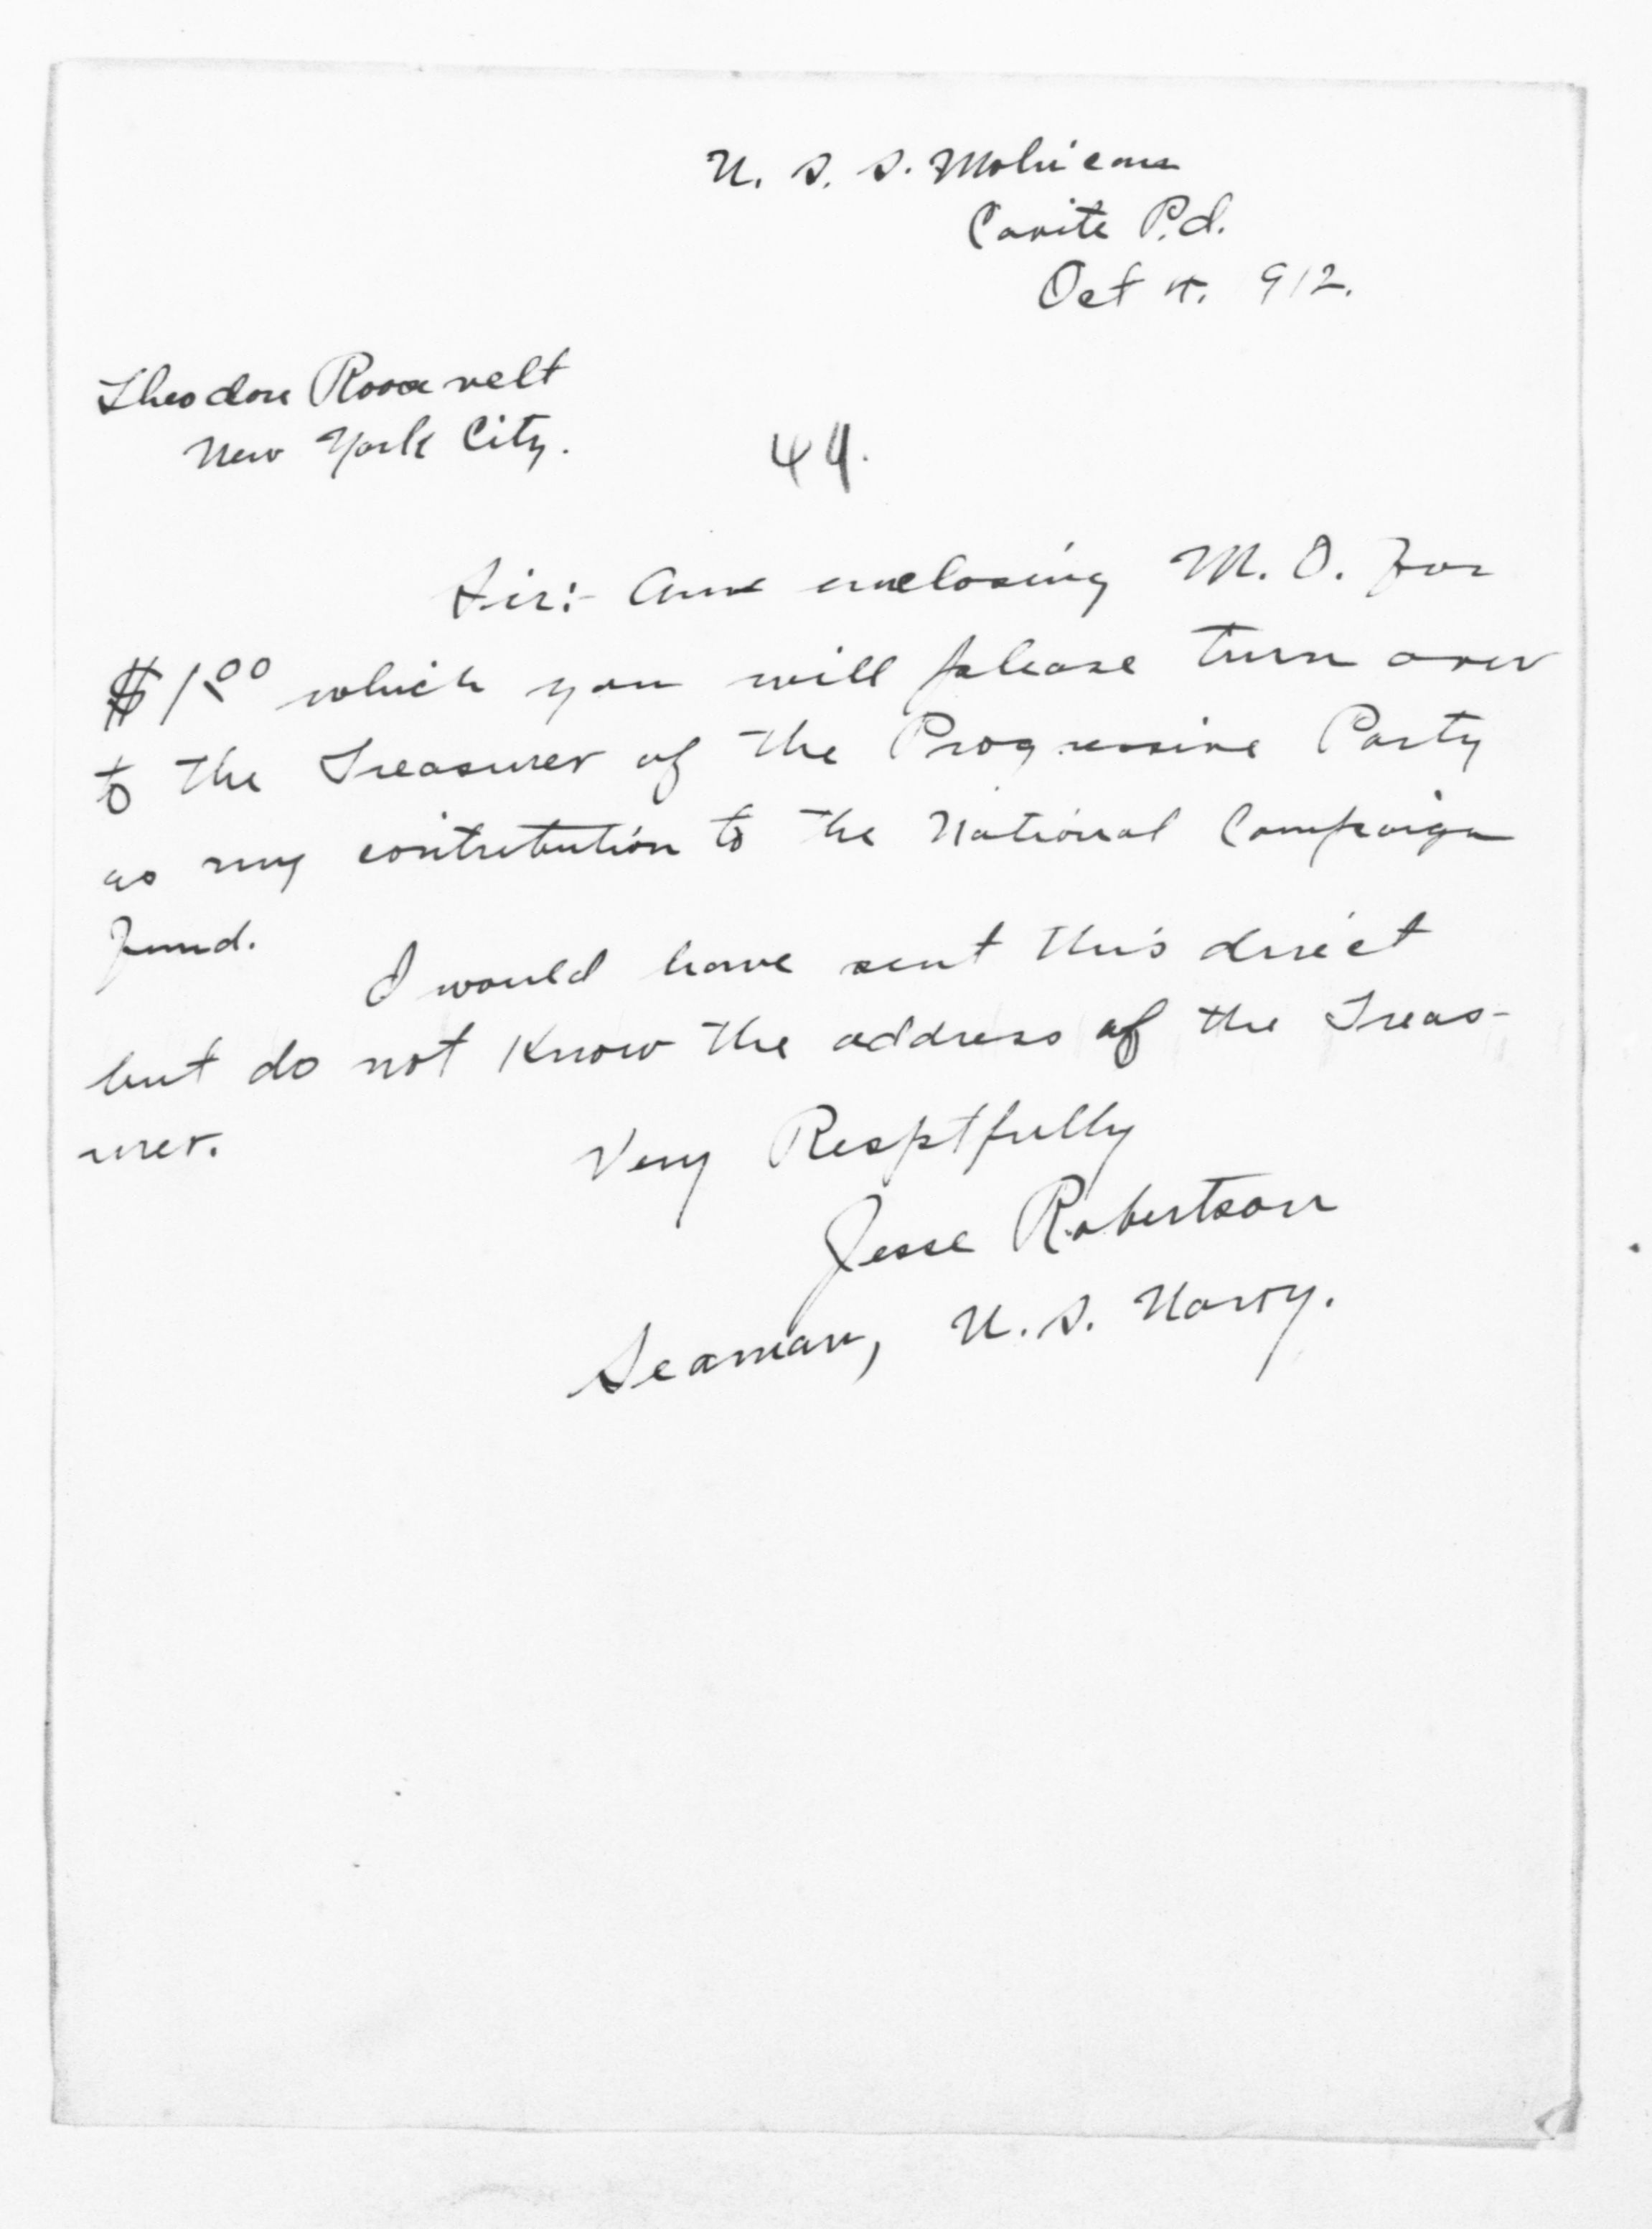 U. S. S. Mohican
Cavite P.I.
Oct 4. 912.
Theodore Roosevelt
New York City.
44.
Sir:- Am enclosing M. O. for
$1.00 which you will please turn over
to the Treasurer of the Progressive Party
as my contribution to the National Campaign
fund.
I would have sent this direct
but do not know the address of the Treas-
urer.
Very Resptfully
Jesse Robertson
Seaman, U. S. Navy.